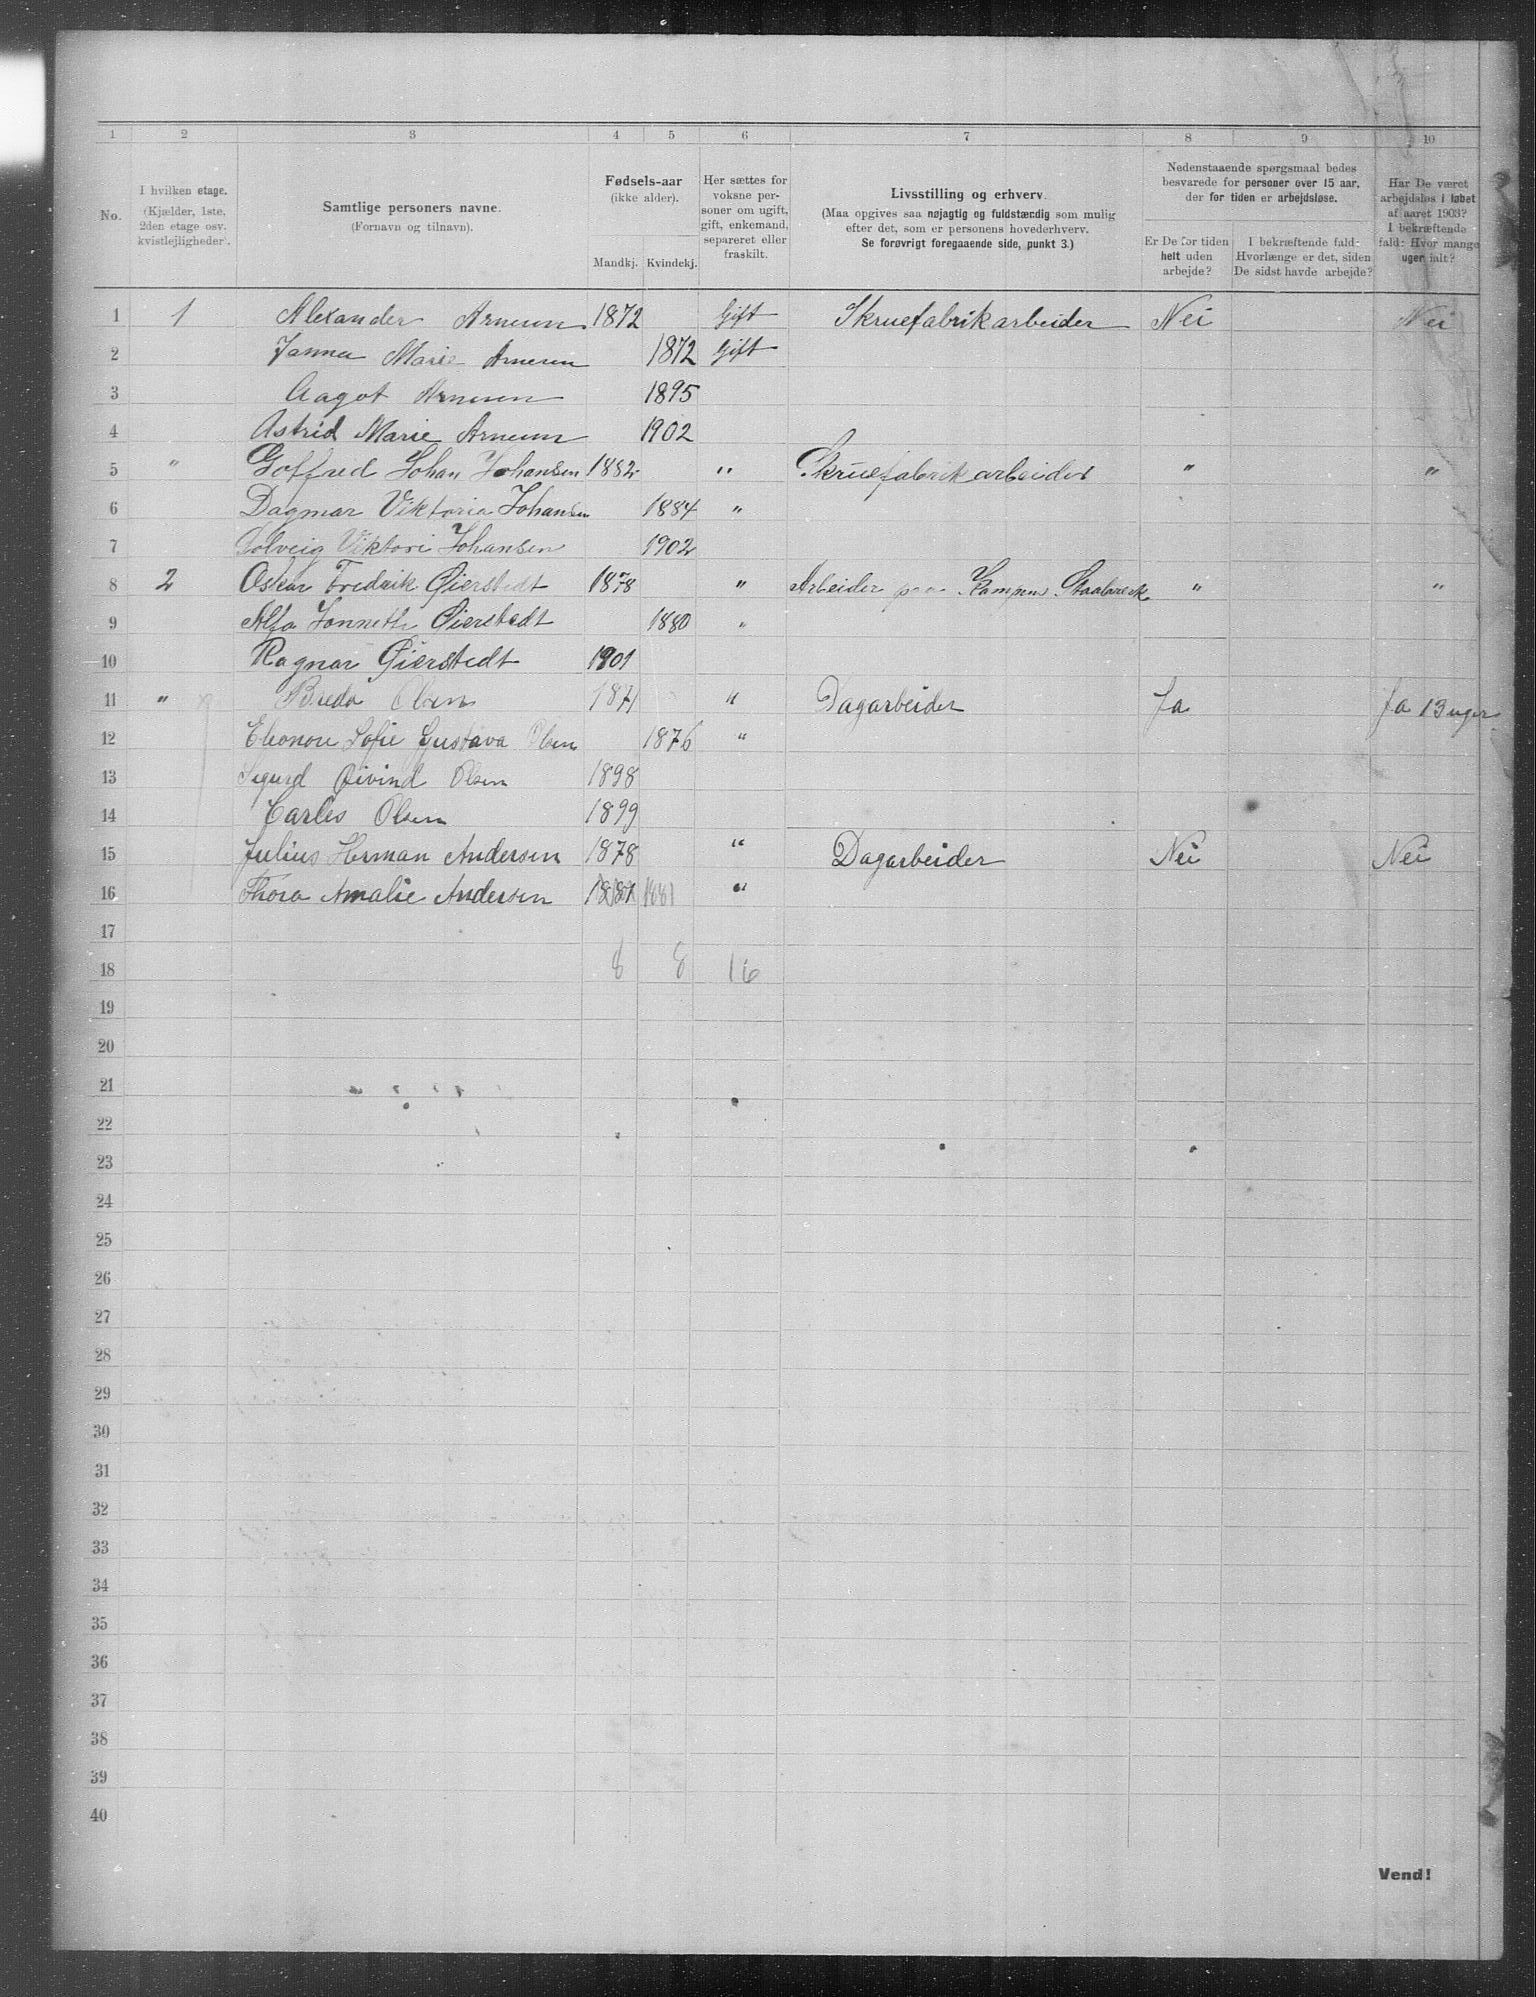 1 2 3 4 5 6 7 8 9 10
No.
I hvilken etage.
(Kjælder, 1ste,
2den etage osv.
kvistlejligheder).
Samtlige personers navne.
(Fornavn og tilnavn).
Fødsels-aar
(ikke alder).
Mandkj. Kvindekj.
Her sættes for
voksne per-
soner om ugift,
gift, enkemand,
separeret eller
fraskilt.
Livsstilling og erhverv.
(Maa opgives saa nøjagtig og fuldstærdig som mulig
efter det, som er personens hovederhverv.
Se forøvrigt foregaaende side, punkt 3.)
Nedenstaaende spørgsmaal bedes
besvarede for personer over 15 aar,
der for tiden er arbejdsløse.
Er De for tiden
helt uden
arbejde?
I bekræftende fald:
Hvorlænge er det, siden
De sidst havde arbejde?
Har De været
arbejdsløs i løbet
af aaret 1903?
I bekræftende
fald: Hvor mange
uger ialt?
1 1 Alexander Arnesen 1872 Gift Skruefabrikarbeider Nei Nei
2 Marie Arnesen 1872 Gift
3 Aagot Arnesen 1895
4 Astrid Marie Arnesen 1902
5 " Gotfred Johan Johansen 1882 " Skruefabrikarbeider " "
6 Dagmar Viktoria Johansen 1884 "
7 Solveig Viktori Johansen 1902
8 2 Oskar Fredrik Øierstedt 1878 " Arbeider paa Kampens Staalverk " "
9 Øierstedt 1880 "
10 Ragnar Øierstedt 1901
11 " Olsen 1871 " Dagarbeider Ja Ja 13 uger
12 Eleonore Sofie Gustava Olsen 1876 "
13 Sigurd Øivind Olsen 1898
14 Carles Olsen 1899
15 Julius Herman Andersen 1878 " Dagarbeider Nei Nei
16 Thora Amalie Andersen 1881 1881 "
17
18 8 8 16
19
20
21
22
23
24
25
26
27
28
29
30
31
32
33
34
35
36
37
38
39
40
Vend!